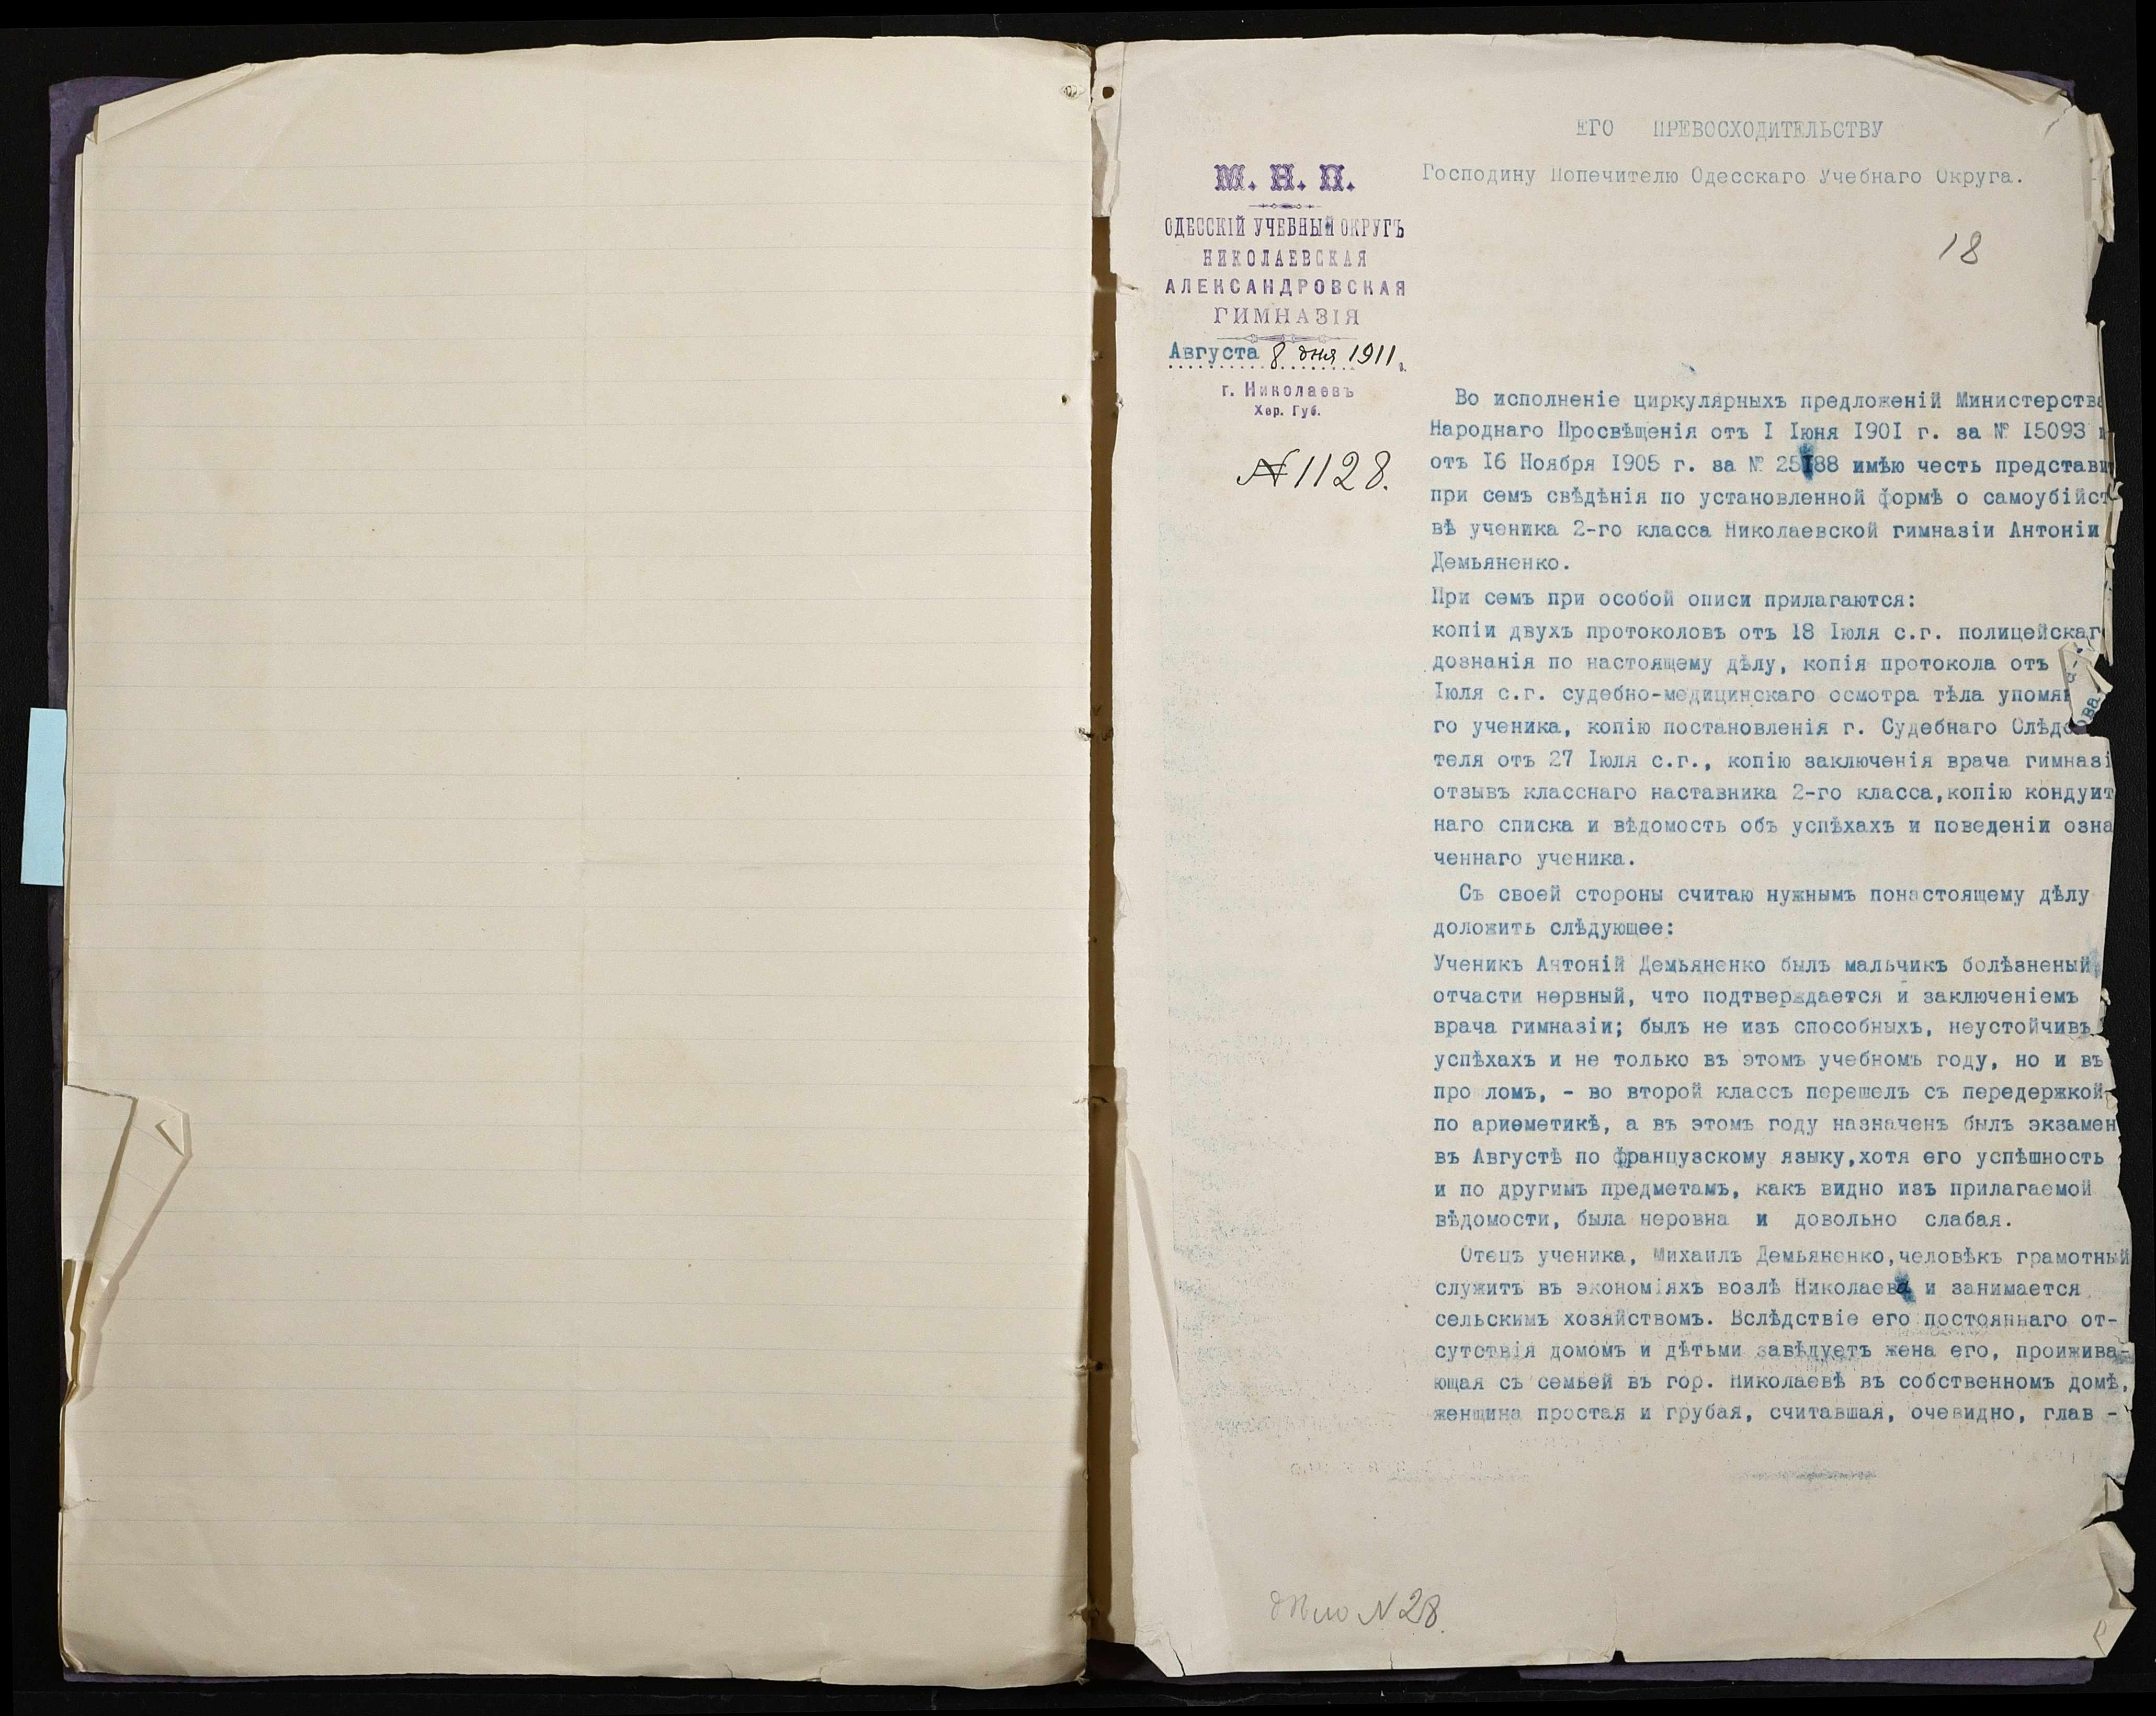 ЕГО ПРЕВОСХОДИТЕЛЬСТВУ
Господину Попечителю Одесскаго Учебнаго Округа.
18
М. Н. П.
ОДЕССКІЙ УЧЕБНЫЙ ОКРУГЪ
НИКОЛАЕВСКАЯ
АЛЕКСАНДРОВСКАЯ
ГИМНАЗІЯ
Августа 8 дня 1911 г.
г. Николаевъ
Хер. Губ.
№ 1128.
Во исполненіе циркулярныхъ предложеній Министерства
Народнаго Просвѣщенія отъ I Іюня 190I г. за № I5093
отъ I6 Ноября I905 г. за № 25I88 имѣю честь представи
при семъ свѣдѣнія по установленной формѣ о самоубійст
вѣ ученика 2-го класса Николаевской гимназіи Антоніи
Демьяненко.
При семъ при особой описи прилагаются:
копіи двухъ протоколовъ отъ I8 Іюля с.г. полицейскаго
дознанія по настоящему дѣлу, копія протокола отъ
Іюля с.г. судебно-медицинскаго осмотра тѣла упомян
го ученика, копію постановленія г. Судебнаго Слѣдова
теля отъ 27 Іюля с.г., копію заключенія врача гимназі
отзывъ класснаго наставника 2-го класса,копію кондуит
наго списка и вѣдомость объ успѣхахъ и поведеніи озна
ченнаго ученика.
Съ своей стороны считаю нужнымъ понастоящему дѣлу
доложить слѣдующее:
Ученикъ Антоній Демьяненко былъ мальчикъ болѣзненый,
отчасти нервный, что подтверждается и заключеніемъ
врача гимназіи; былъ не изъ способныхъ, неустойчивъ
успѣхахъ и не только въ этомъ учебномъ году, но и въ
про ломъ, - во второй классъ перешелъ съ передержкой
по ариѳметикѣ, а въ этомъ году назначенъ былъ экзамен
въ Августѣ по французскому языку,хотя его успѣшность
и по другимъ предметамъ, какъ видно изъ прилагаемой
вѣдомости, была неровна и довольно слабая.
Отецъ ученика, Михаилъ Демьяненко,человѣкъ грамотный
служитъ въ экономіяхъ возлѣ Николаева и занимается
сельскимъ хозяйствомъ. Вслѣдствіе его постояннаго от-
сутствія домомъ и дѣтьми завѣдуетъ жена его, проижива-
ющая съ семьей въ гор. Николаевѣ въ собственномъ домѣ,
женщина простая и грубая, считавшая, очевидно, глав -
дѣло N 28.